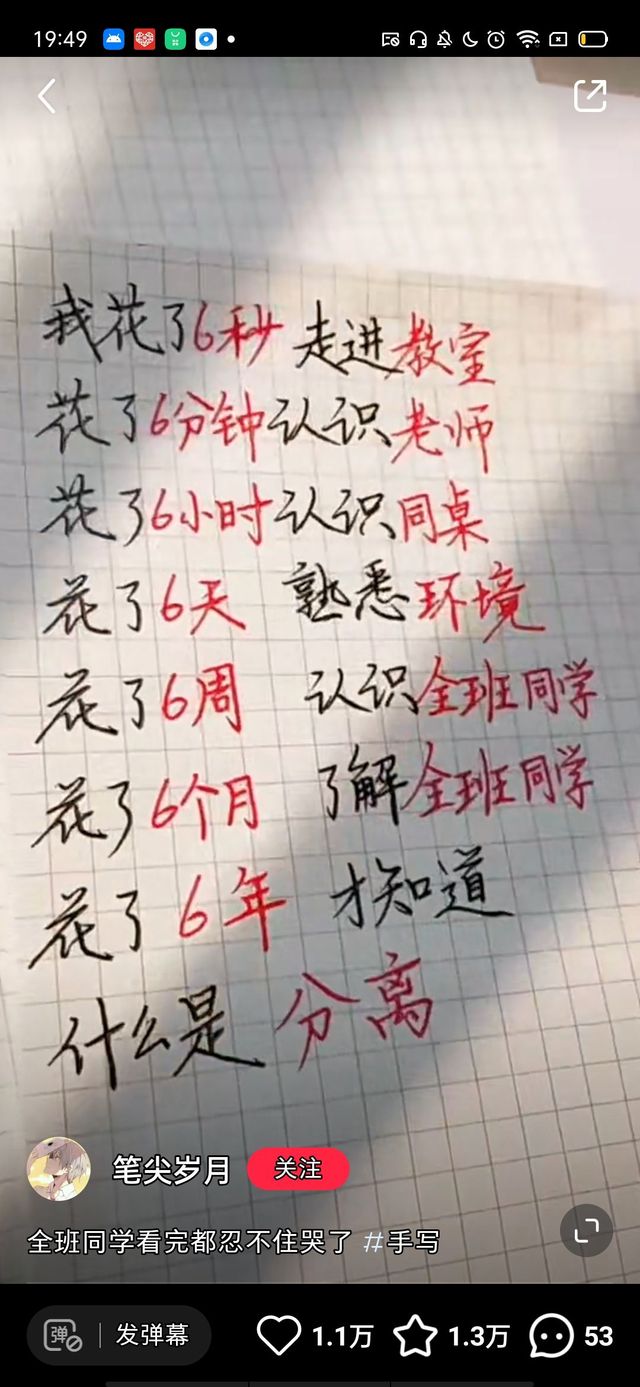 19:49
我花了6秒 走进教室
花了6分钟认识老师
花了6小时认识同桌
花了6天 熟悉环境
花了6周 认识全班同学
花了6个月 了解全班同学
花了6年 才知道
什么是 分离
笔尖岁月 关注
全班同学看完都忍不住哭了 #手写
弹 发弹幕 1.1万 1.3万 53